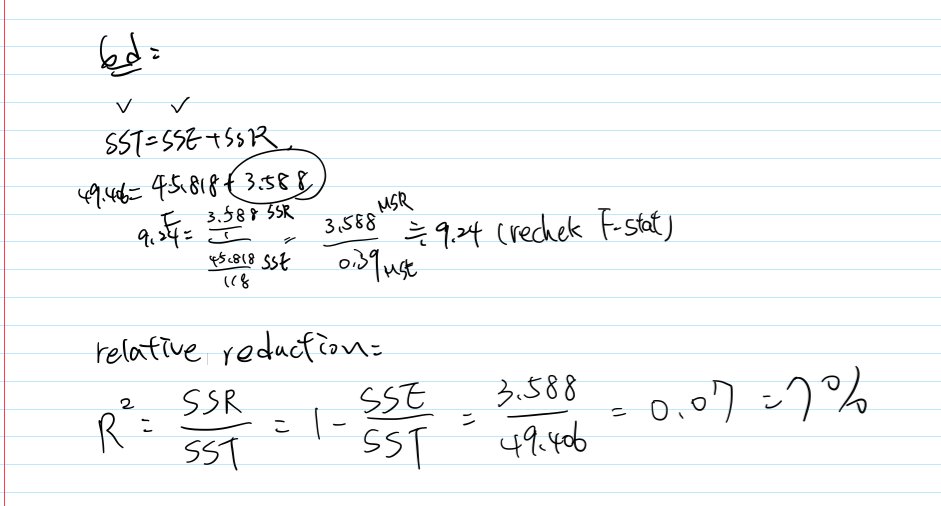 6d:
✓ ✓
SST=SSE+SSR.
49.406= 45.818+3.588
F
9.24= 3.588 SSR / 1 / 45.818 SSE / 118 = 3.588 MSR / 0.39 MSE ≒ 9.24 (rechek F-stat)
relative reduction=
R² = SSR/SST = 1 - SSE/SST = 3.588/49.406 = 0.07 = 7%